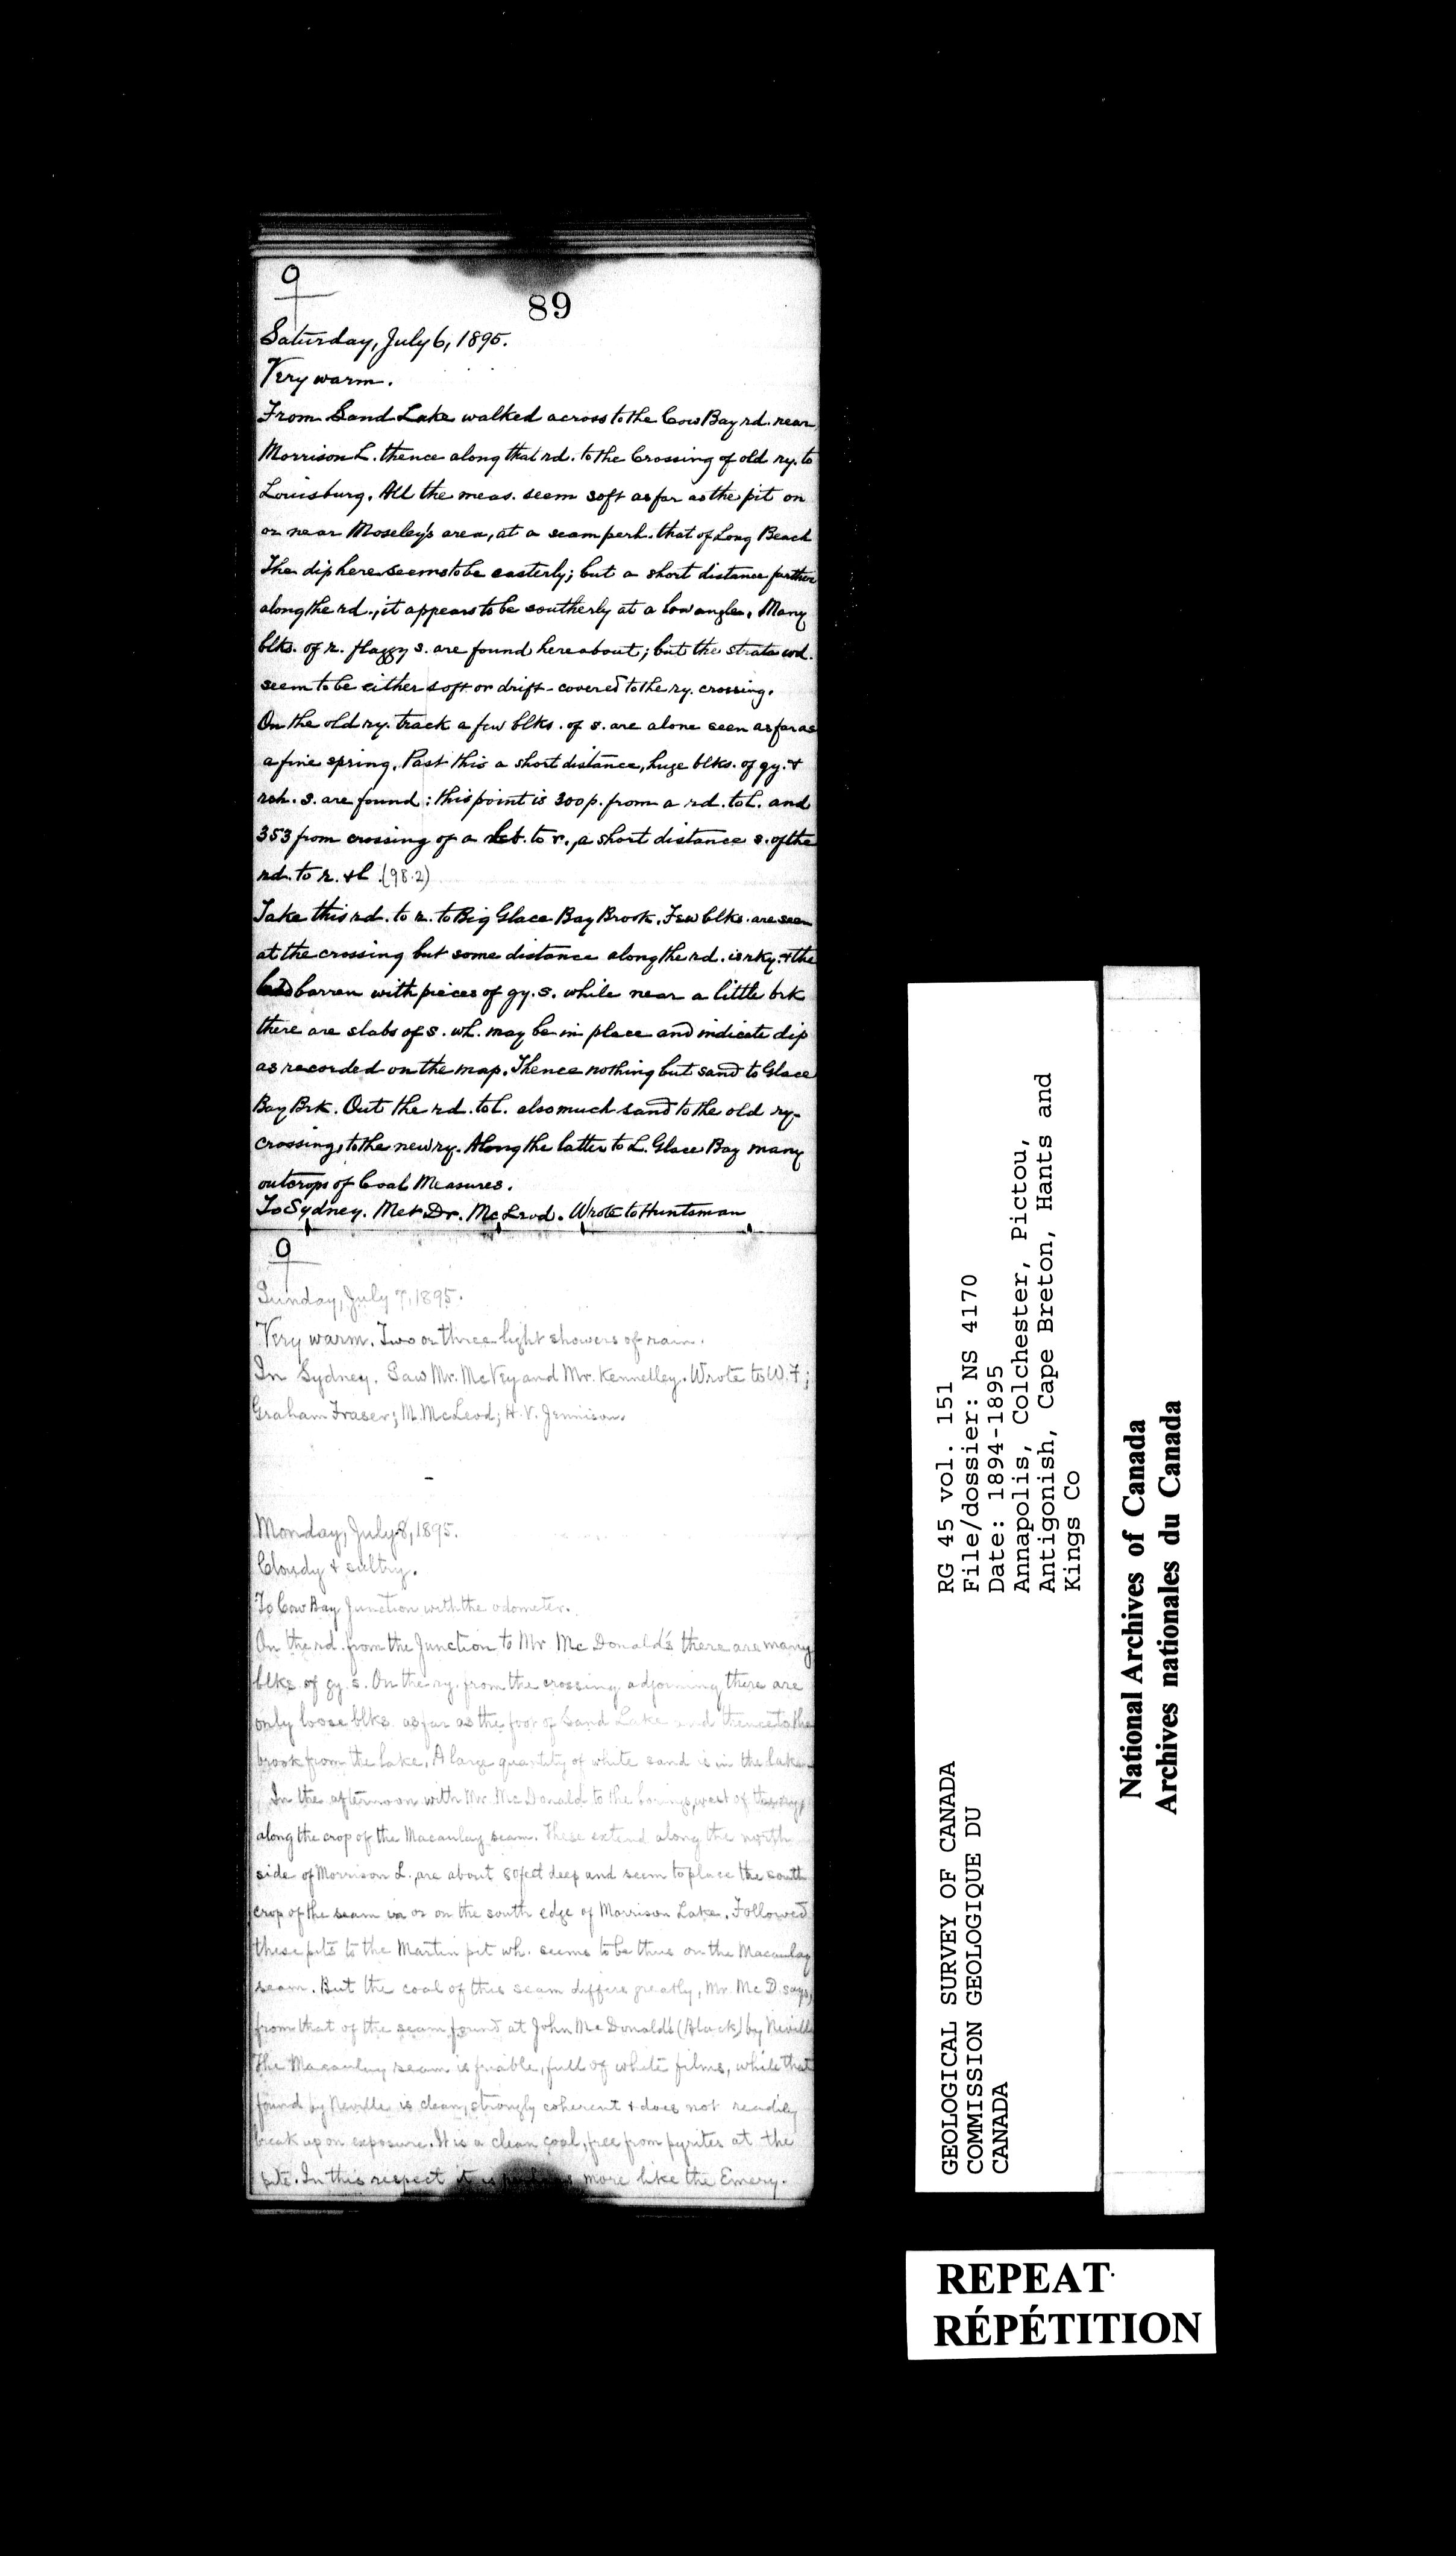 9
89
Saturday, July 6, 1895.
Very warm.
From Sand Lake walked across to the Cow Bay rd. near
Morrison L. thence along that rd. to the Crossing of old ry. to
Louisburg. All the meas. seem soft as far as the pit on
or near Moseley's area, at a seam perh. that of Long Beach
The dip here seems to be easterly; but a short distance further
along the rd., it appears to be southerly at a low angle. Many
blks. of r. flaggy s. are found hereabout; but the strata wd.
seem to be either soft or drift-covered to the ry. crossing.
On the old ry. track a few blks. of s. are alone seen as far as
a fine spring. Past this a short distance, huge blks. of gy. &
rdh. s. are found: this point is 300 p. from a rd. to l. and
353 from crossing of a to r., a short distance s. of the
rd. to r. & l. (98.2)
Take this rd. to r. to Big Glace Bay Brook. Few blks. are seen
at the crossing but some distance along the rd. is rky. & the
barren with pieces of gy. s. while near a little brk
there are slabs of s. wh. may be in place and indicate dip
as recorded on the map. Thence nothing but sand to Glace
Bay Brk. Out the rd. to l. also much sand to the old ry-
crossing, to the new ry. Along the latter to L. Glace Bay many
outcrops of Coal Measures.
To Sydney. Met Dr. McLeod. Wrote to Huntsman
9
Sunday, July 7, 1895.
Very warm. Two or three light showers of rain.
In Sydney. Saw Mr. McVey and Mr. Kennelley. Wrote to W. F;
Graham Fraser; M. McLeod; H. V. Jennison.
Monday, July 8, 1895.
Cloudy & sultry.
To Cow Bay Junction with the odometer.
On the rd. from the Junction to Mr McDonald's there are many
blks. of gy. s. On the ry. from the crossing adjoining there are
only loose blks. as far as the foot of Sand Lake and thence to the
brook from the lake. A large quantity of white sand is in the lake.
In the afternoon with Mr. McDonald to the borings, west of the
along the crop of the Macaulay seam. These extend along the north
side of Morrison L., are about 80 feet deep and seem to place the south
crop of the seam in or on the south edge of Morrison Lake. Followed
these pits to the Martin pit wh. seems to be thus on the Macaulay
seam. But the coal of this seam differs greatly, Mr. McD. says,
from that of the seam found at John McDonald's (Black) by Neville
The Macaulay seam is friable, full of white films, while that
found by Neville is clean, strongly coherent & does not readily
break up on exposure. It is a clean coal, free from pyrites at the
pits. In this respect it is perhaps more like the Emery.
RG 45 vol. 151
File/dossier: NS 4170
Date: 1894-1895
Annapolis, Colchester, Pictou,
Antigonish, Cape Breton, Hants and
Kings Co
GEOLOGICAL SURVEY OF CANADA
COMMISSION GEOLOGIQUE DU
CANADA
National Archives of Canada
Archives nationales du Canada
REPEAT
RÉPÉTITION